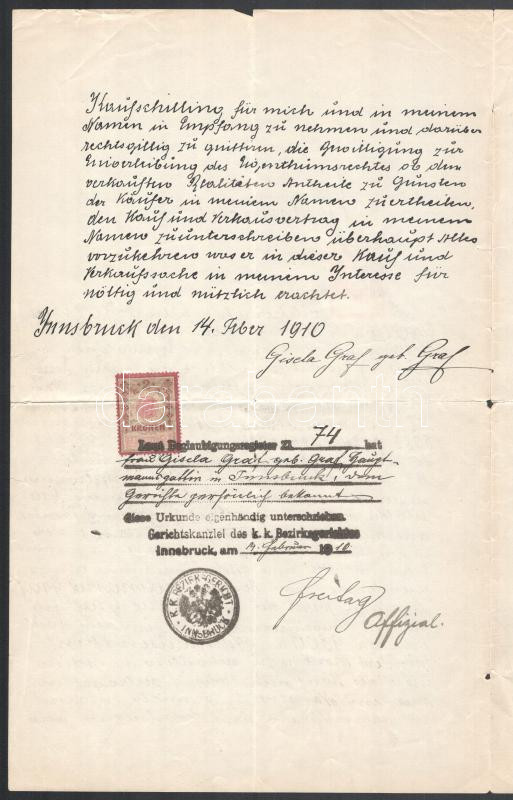 Kaufschilling für mich und in meinem
Namen in Empfang zu nehmen und darüber
rechtsgiltig zu quittirn, die Bewilligung zur
Einverleibung des Eigenthumsrechtes ob den
verkauften Realitäten Antheile zu Gunsten
der Käufer in meinem Namen zu ertheilen,
den Kauf und Verkaufvertrag in meinem
Namen zu unterschreiben überhaupt Alles
vorzukehren was er in dieser Kauf und
Verkaufssache in meinem Interesse für
nöttig und nützlich erachtet.
Innsbruck den 14. Feber 1910
Gisela Graf geb. Graf
2
KRONEN
darabanth
Laut Beglaubigungsregister Zl. 74 hat
Frau Gisela Graf geb. Graf, Haupt-
mannsgattin in Innsbruck, vom
Gerichte persönlich bekannt
diese Urkunde eigenhändig unterschrieben.
Gerichtskanzlei des k. k. Bezirksgerichtes
Innsbruck, am 14. Februar 1910.
K. K. BEZIRKSGERICHT
INNSBRUCK
Freitag
Offizial.